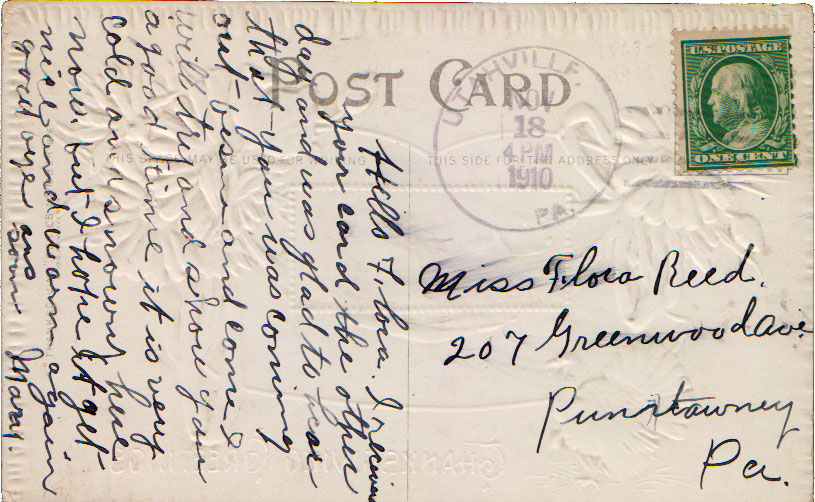 POST CARD
THIS SPACE MAY BE USED FOR WRITING
THIS SIDE FOR THE ADDRESS ONLY
U.S. POSTAGE
ONE CENT
UTAHVILLE
NOV
18
4 PM
1910
PA.
Hello Flora. I received
your card the other
day and was glad to hear
that you was coming
out besure and come I
will try and show you
a good time it is very
cold and snowy here
now but I hope it get
nice and warm again
good bye ans
soon Mary.
Miss Flora Reed.
207 Greenwood Ave
Punxtawney
Pa.
THANKSGIVING GREETINGS